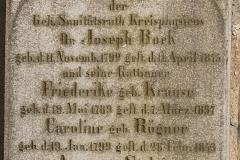 der
Geh. Sanitätsrath Kreisphysicus
Dr Joseph Bock
geb. d. 11. Novemb. 1799 gest. d. 11. April 1875
und seine Gattinnen
Friederike geb. Krause
geb. d. 19. Mai 1789 gest. d. 7. März 1837
Caroline geb. Rögner
geb. d. 13. Jan. 1799 gest. d. 26. Febr. 1843